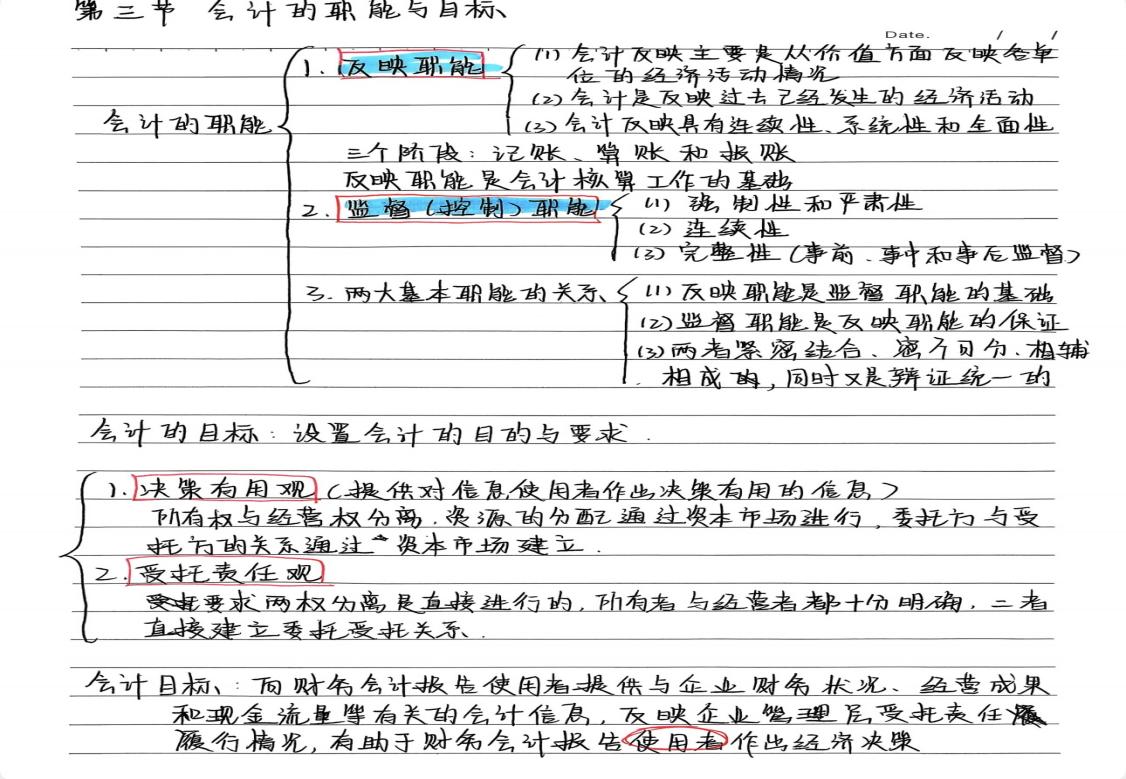 第三节 会计的职能与目标
Date. / /
会计的职能
1. 反映职能
(1) 会计反映主要是从价值方面反映各单
位的经济活动情况
(2) 会计是反映过去已经发生的经济活动
(3) 会计反映具有连续性、系统性和全面性
三个阶段：记账、算账和报账
反映职能是会计核算工作的基础
2. 监督（控制）职能
(1) 强制性和严肃性
(2) 连续性
(3) 完整性（事前、事中和事后监督）
3. 两大基本职能的关系
(1) 反映职能是监督职能的基础
(2) 监督职能是反映职能的保证
(3) 两者紧密结合、密不可分、相辅
相成的，同时又是辩证统一的
会计的目标：设置会计的目的与要求.
1. 决策有用观（提供对信息使用者作出决策有用的信息）
所有权与经营权分离，资源的分配通过资本市场进行，委托方与受
托方的关系通过资本市场建立.
2. 受托责任观
要求两权分离是直接进行的，所有者与经营者都十分明确，二者
直接建立委托受托关系.
会计目标：向财务会计报告使用者提供与企业财务状况、经营成果
和现金流量等有关的会计信息，反映企业管理层受托责任
履行情况，有助于财务会计报告使用者作出经济决策